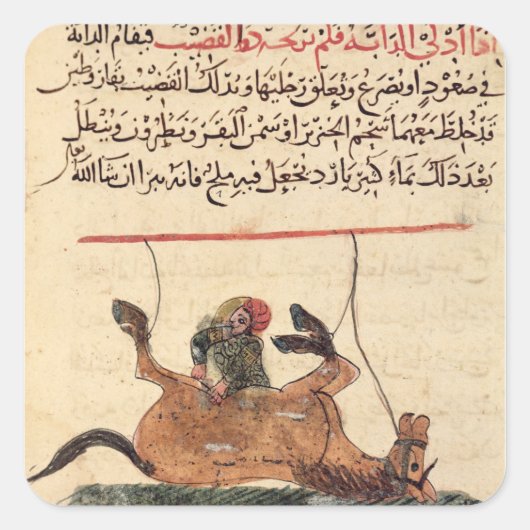 اذا ادلى الدابة فلم يرجع ذا القضيب فيقام الدابة
في صعود او يصرع ويعلق رجليها ويدلك القضيب بقار وطين
قد خلط معهما شحم الخنزير او سمن البقر ونطرون ويبطل
بعد ذلك بماء كثير بارد نجعل فيه ملح فانه يبرا ان شا الله تعالى